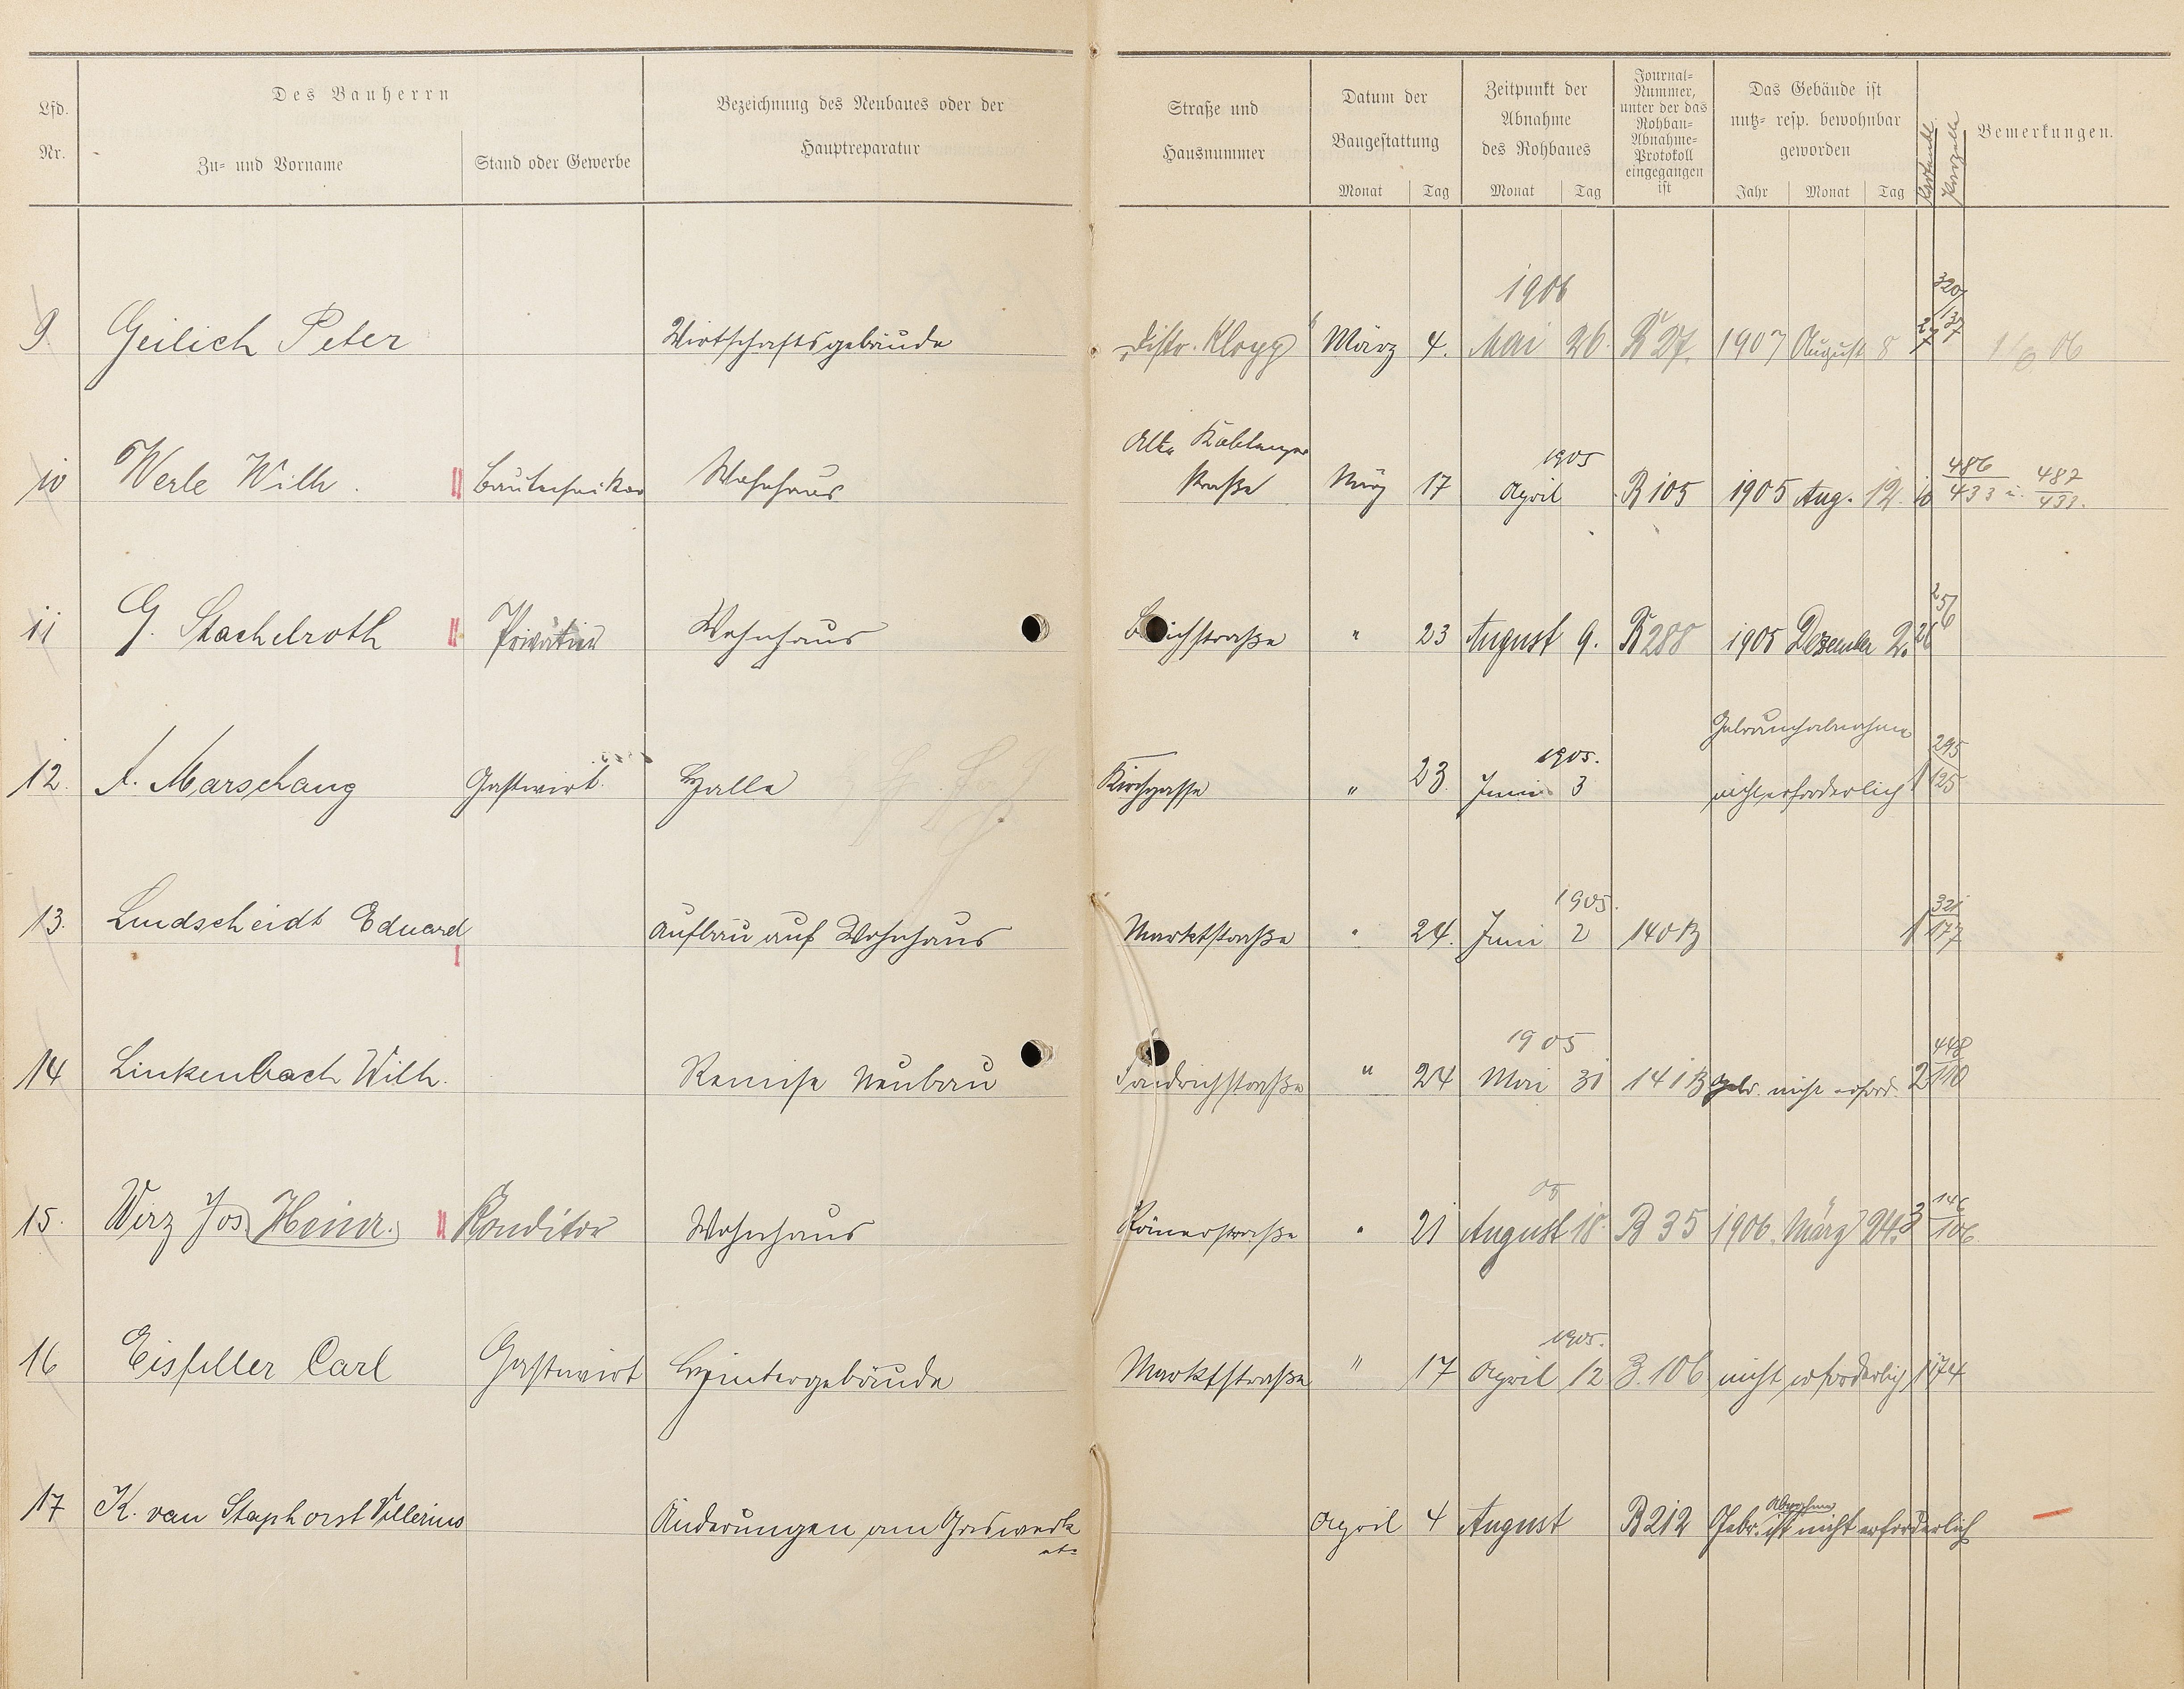 Lfd. Nr.
Des Bauherrn
Zu- und Vorname
Stand oder Gewerbe
Bezeichnung des Neubaues oder der
Hauptreparatur
Straße und
Hausnummer
Datum der
Baugestattung
Monat Tag
Zeitpunkt der
Abnahme
des Rohbaues
Monat Tag
Journal-
Nummer,
unter der das
Rohbau-
Abnahme-
Protokoll
eingegangen
ist
Das Gebäude ist
nutz- resp. bewohnbar
geworden
Jahr Monat Tag
Parzelle
Bemerkungen.
1906
320/137
9 Geilich Peter Wirtschaftsgebäude „Distr. Klopp" März 4. Mai 26. B 27. 1907 August 8
Alte Koblenzer
1905
10 Werle Wilh. II Bautechniker Wohnhaus straße März 17 April B 105 1905 Aug. 12. 10 486/433 u. 487/433.
11 G. Stachelroth II Privatier Wohnhaus " 23 August 9. B 288 1905 Dezember 2. 26
Gebrauchsabnahme
1905.
12. A. Marschang Gastwirt. Halle Kirchgasse " 23. Juni 3 nicht erforderlich 1 295/125
1905.
13. Lindscheidt Eduard I Aufbau auf Wohnhaus Marktstraße " 24. Juni 2 140 B 1 321/177
1905
14 Linkenbach Wilh. Remise Neubau " 24 Mai 31 141 B Gebr. nicht erford. 2 448/110
05
15. Wirz Jos. Heinr. II Konditor Wohnhaus Römerstraße " 21 August 18. B 35 1906. März 24. 3 146/106
1905.
16 Eisfeller Carl Gastwirt Hintergebäude Marktstraße " 17 April 12 B. 106 nicht erforderlich 1 174
Abnahme
17 K. van Staphorst Villerius Änderungen am Gaswerk April 4 August B 212 Gebr. ist nicht erforderlich
etc